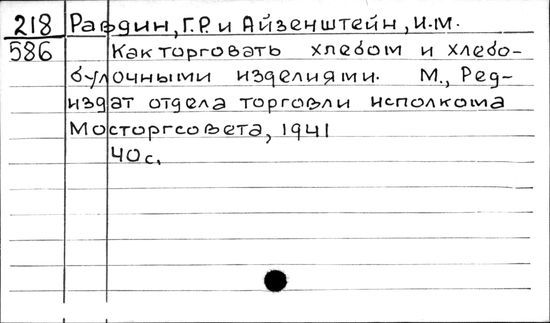 218 Равдин, Г.Р. и Айзенштейн, И.М.
586 Как торговать хлебом и хлебо-
булочными изделиями. М., Ред-
издат отдела торговли исполкома
Мосторгсовета, 1941
40 с.